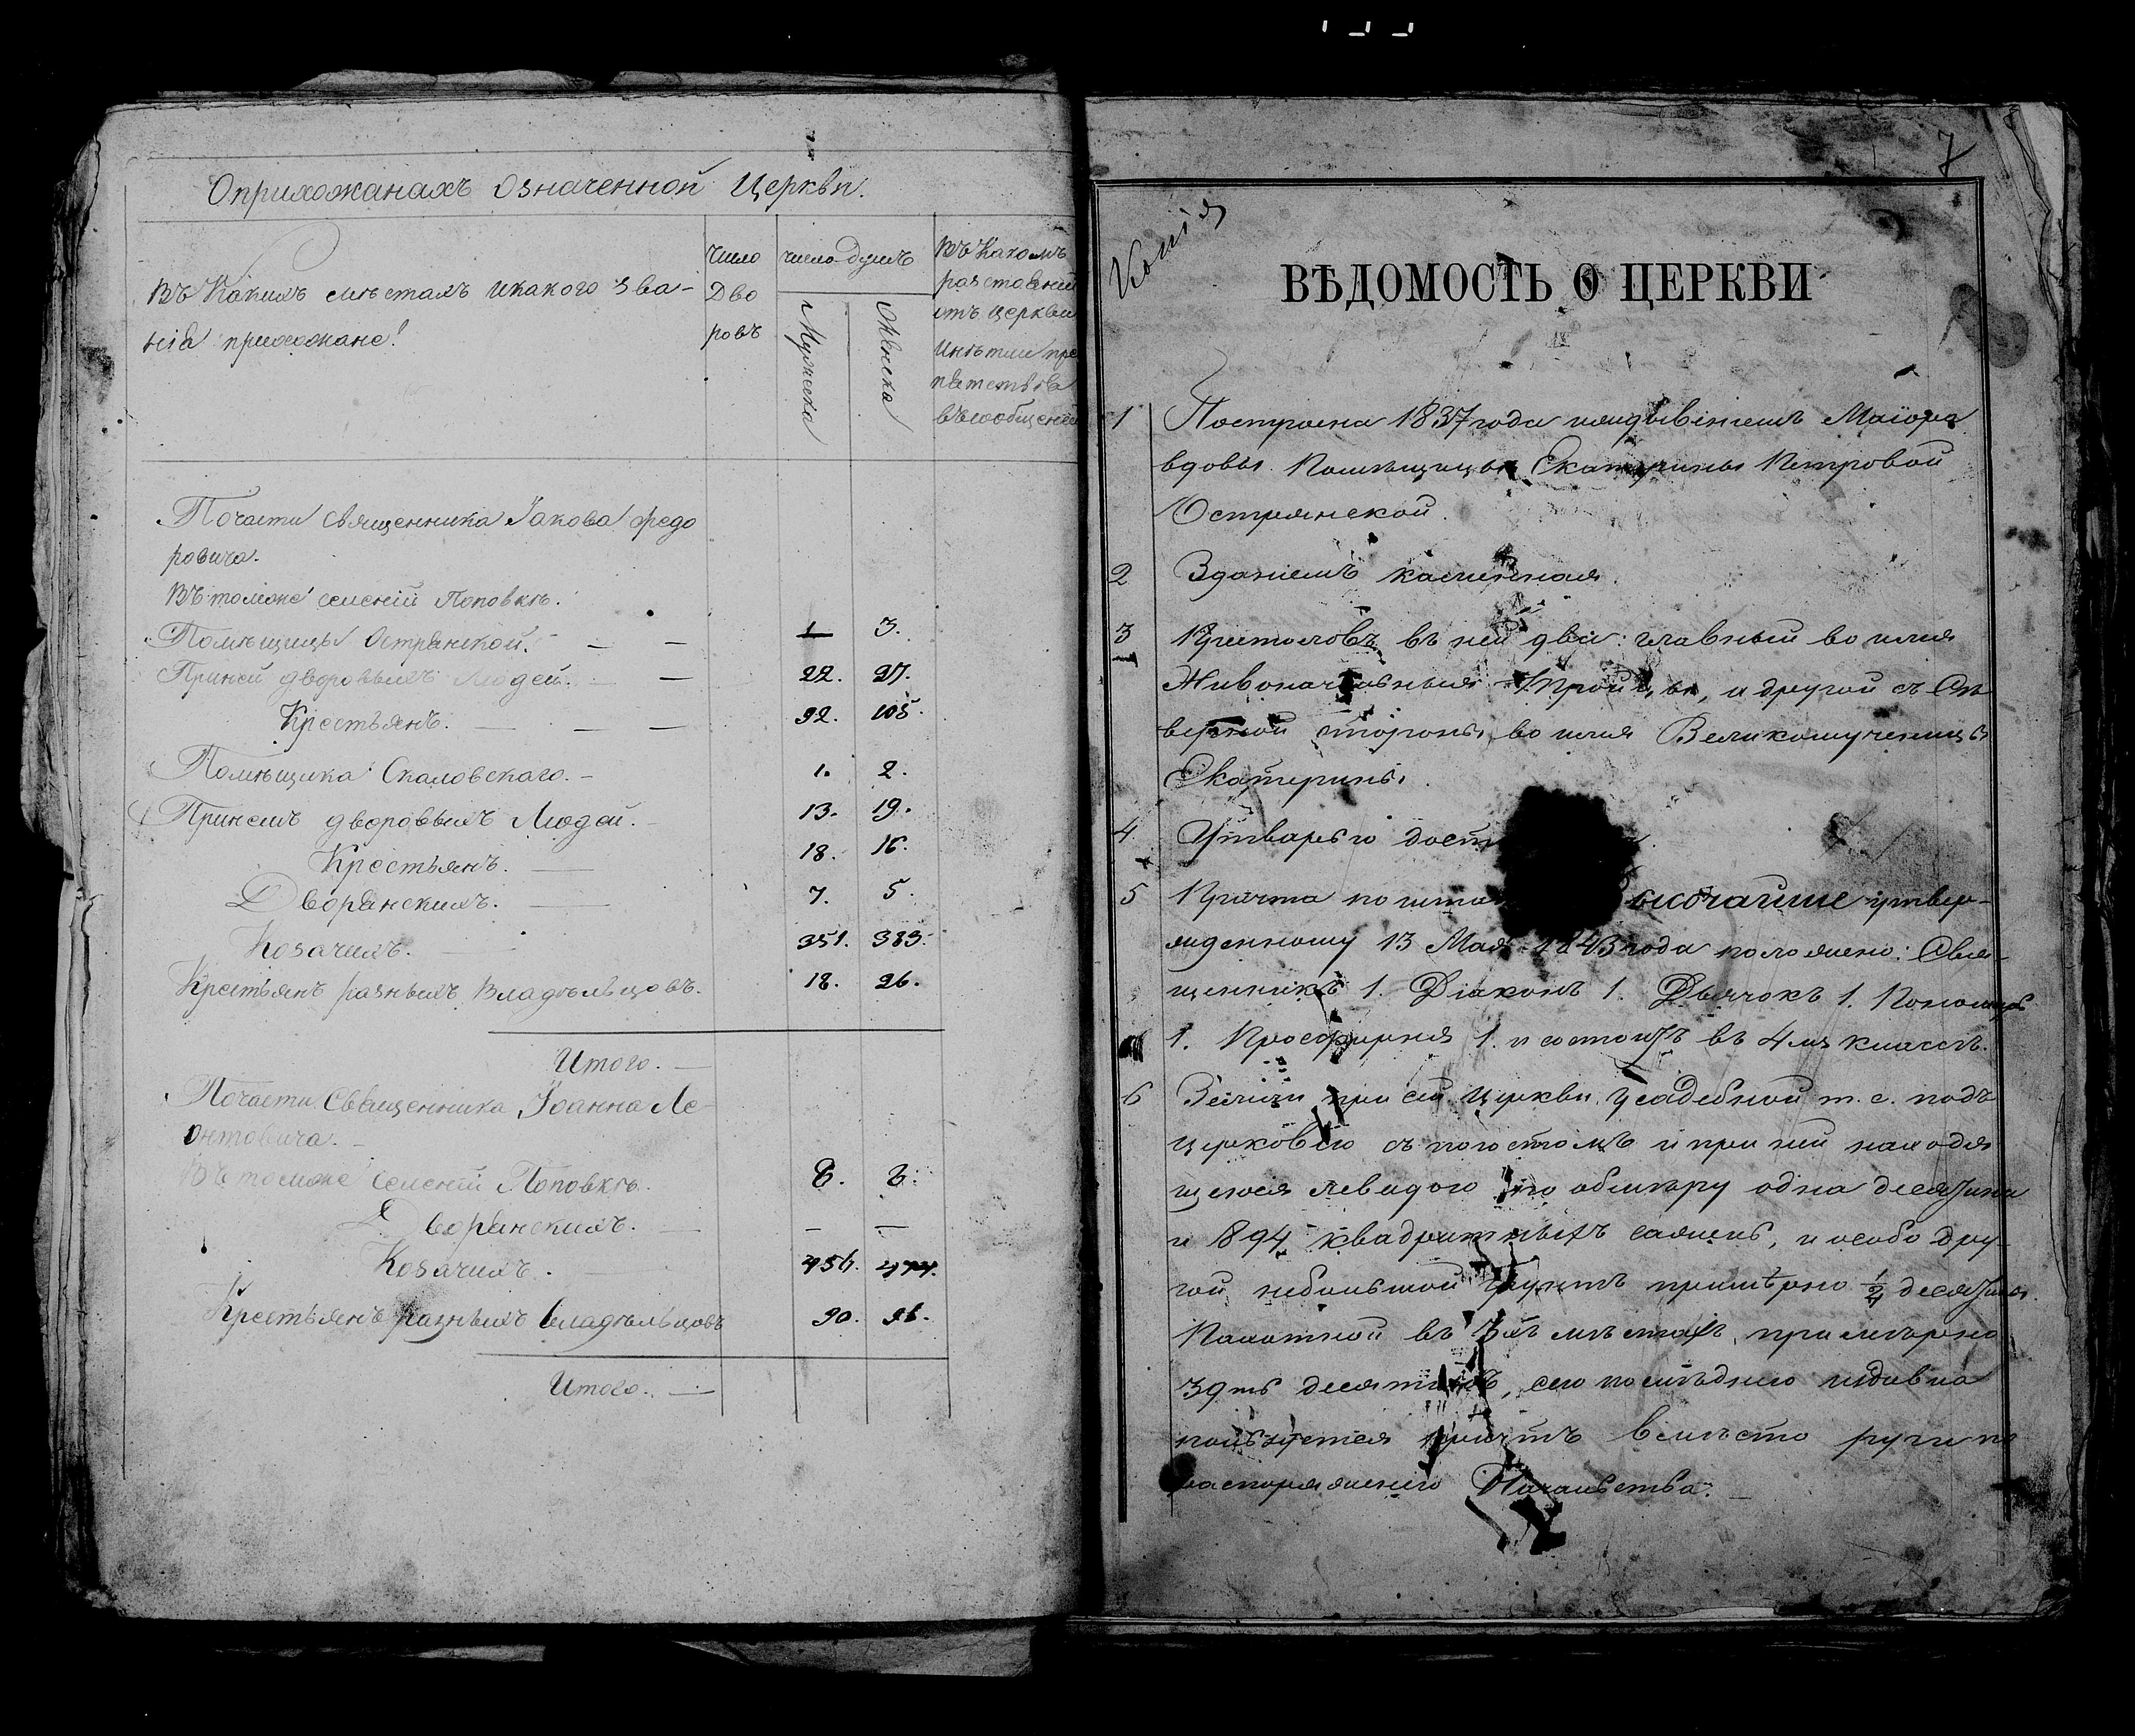 О прихожанахъ означенной Церкви.
Въ какихъ мѣстахъ и какого зва-
нія прихожане?
Число
Дво
ровъ
число душъ
Мужеска
Женска
Въ какомъ
разстояніи
отъ церкви
и нѣтъ ли пре
пятствія
въ сообщеніи
По части священника Іакова Федо
ровича.
Въ томъ же селеніи Поповкѣ.
Помѣщицы Острянской. — — 1 3.
При ней дворовыхъ людей. — — 22. 27.
Крестьянъ. — — — 92. 105.
Помѣщика Скаловскаго. — 1. 2.
При немъ дворовыхъ Людей. — 13. 19.
Крестьянъ. — 18. 16.
Дворянскихъ. — 7. 5.
Козачихъ. — 351. 383.
Крестьянъ разныхъ Владѣльцовъ. 18. 26.
Итого. —
По части Священника Іоанна Ле-
онтовича. —
Въ томъ же селеніи Поповкѣ. 8. 8.
Дворянскихъ. — — —
Козачихъ. — 456. 477.
Крестьянъ разныхъ владѣльцовъ 30. 36.
Итого. —
7
Копія
ВѢДОМОСТЬ О ЦЕРКВИ
1 Построена 1837 года иждивеніемъ Маіора
вдовы Помѣщицы Екатерины Петровой
Острянской.
2 Зданіемъ каменная.
3 Престоловъ въ ней два: главный во имя
Живоначальныя Тройцы, и другой съ Сѣ
верной стороны во имя Великомученицы
Екатерины.
4 Утварью
5 Причта по утвер-
жденному 13 Мая 1843 года положено: Свя-
щенникъ 1. Діаконъ 1. Дьячокъ 1. Пономарь
1. Просфирня 1. и состоитъ въ 4мъ классѣ.
6 Земли при сей Церкви усадебной т. е. подъ
церковью съ погостомъ и при ней находя
щеюся левадою по обмѣру одна десятина
и 894 квадратныхъ сажень, и особо дру-
гой небольшой грунтъ примѣрно ½ десятины.
Пахатной въ 3хъ мѣстахъ, примѣрно
39ть десятинъ, сею послѣднею издавна
пользуется причтъ вмѣсто руги по
распоряженію Начальства. —